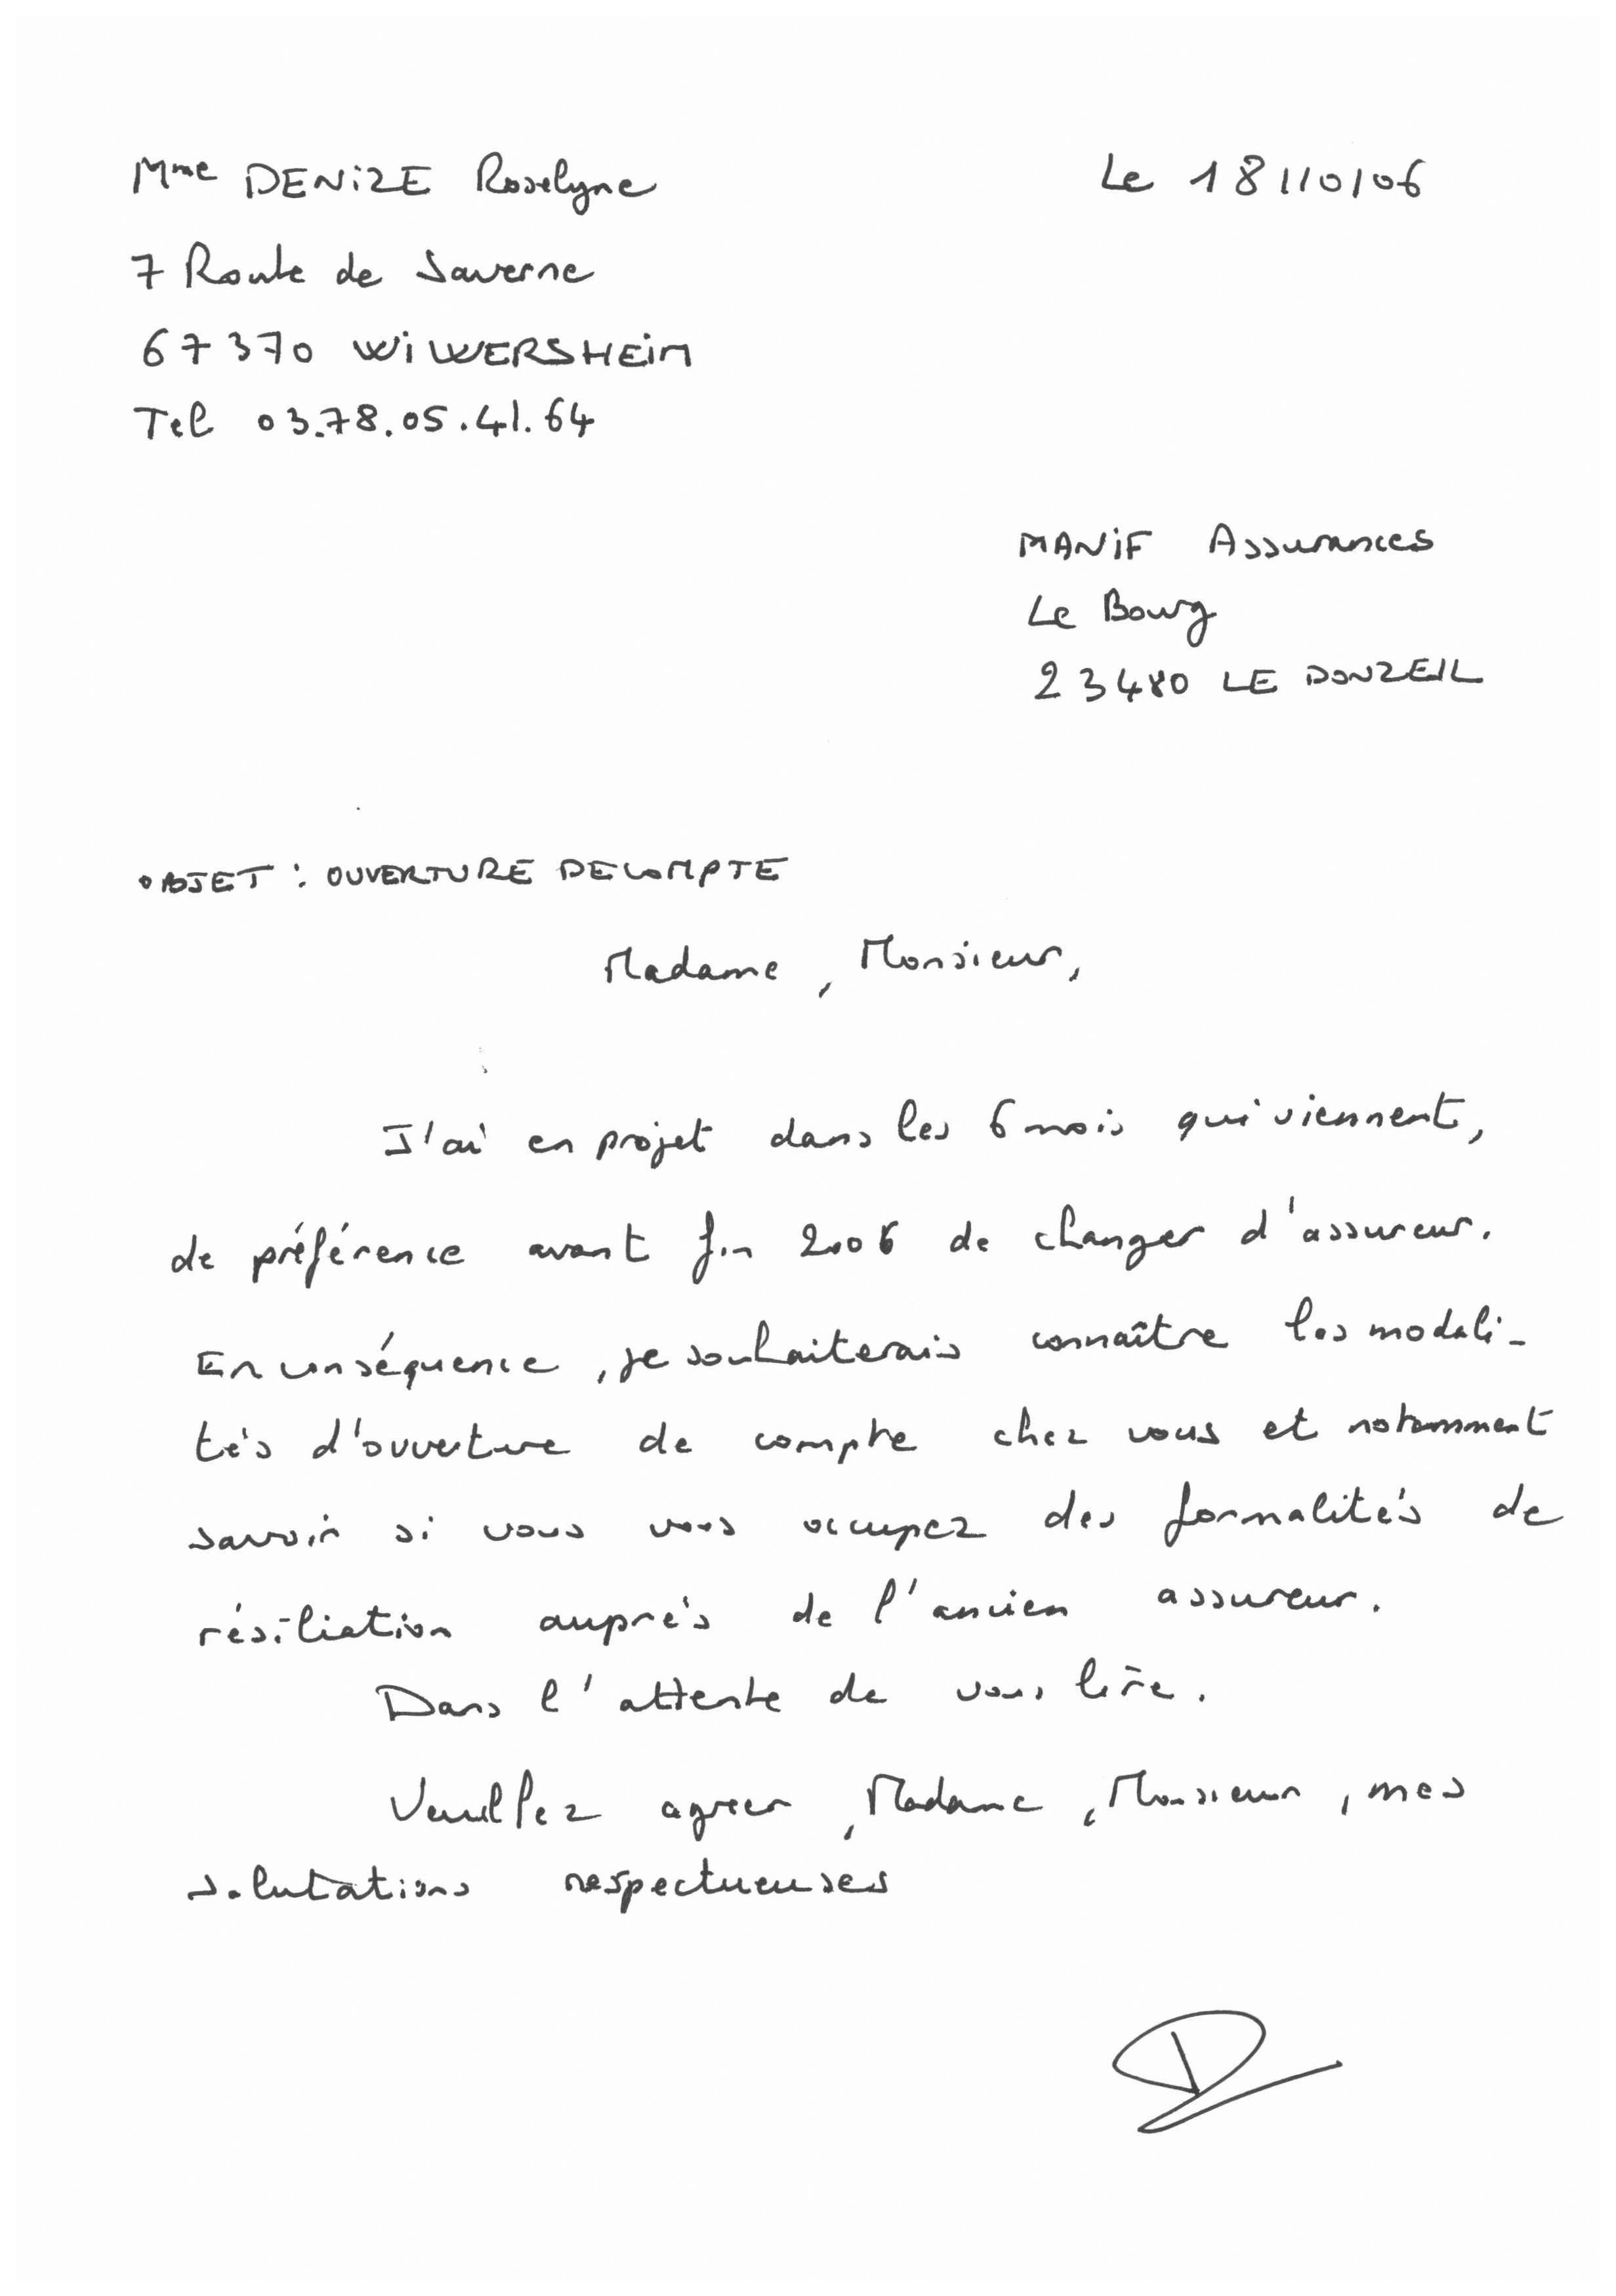 Mme DENIZE Roselyne
Le 18/10/06
7 Route de Saverne
67370 WIWERSHEIM
Tel 03.78.05.41.64
MANIF Assurances
Le Bourg
23480 LE DONZEIL
OBJET : OUVERTURE DE COMPTE
Madame, Monsieur,
J'ai en projet dans les 6 mois qui viennent,
de préférence avant fin 2006 de changer d'assureur.
En conséquence, je souhaiterais connaître les modali-
tés d'ouverture de compte chez vous et notamment
savoir si vous vous occupez des formalités de
résiliation auprès de l'ancien assureur.
Dans l'attente de vous lire.
Veuillez agreer, Madame, Monsieur, mes
salutations respectueuses